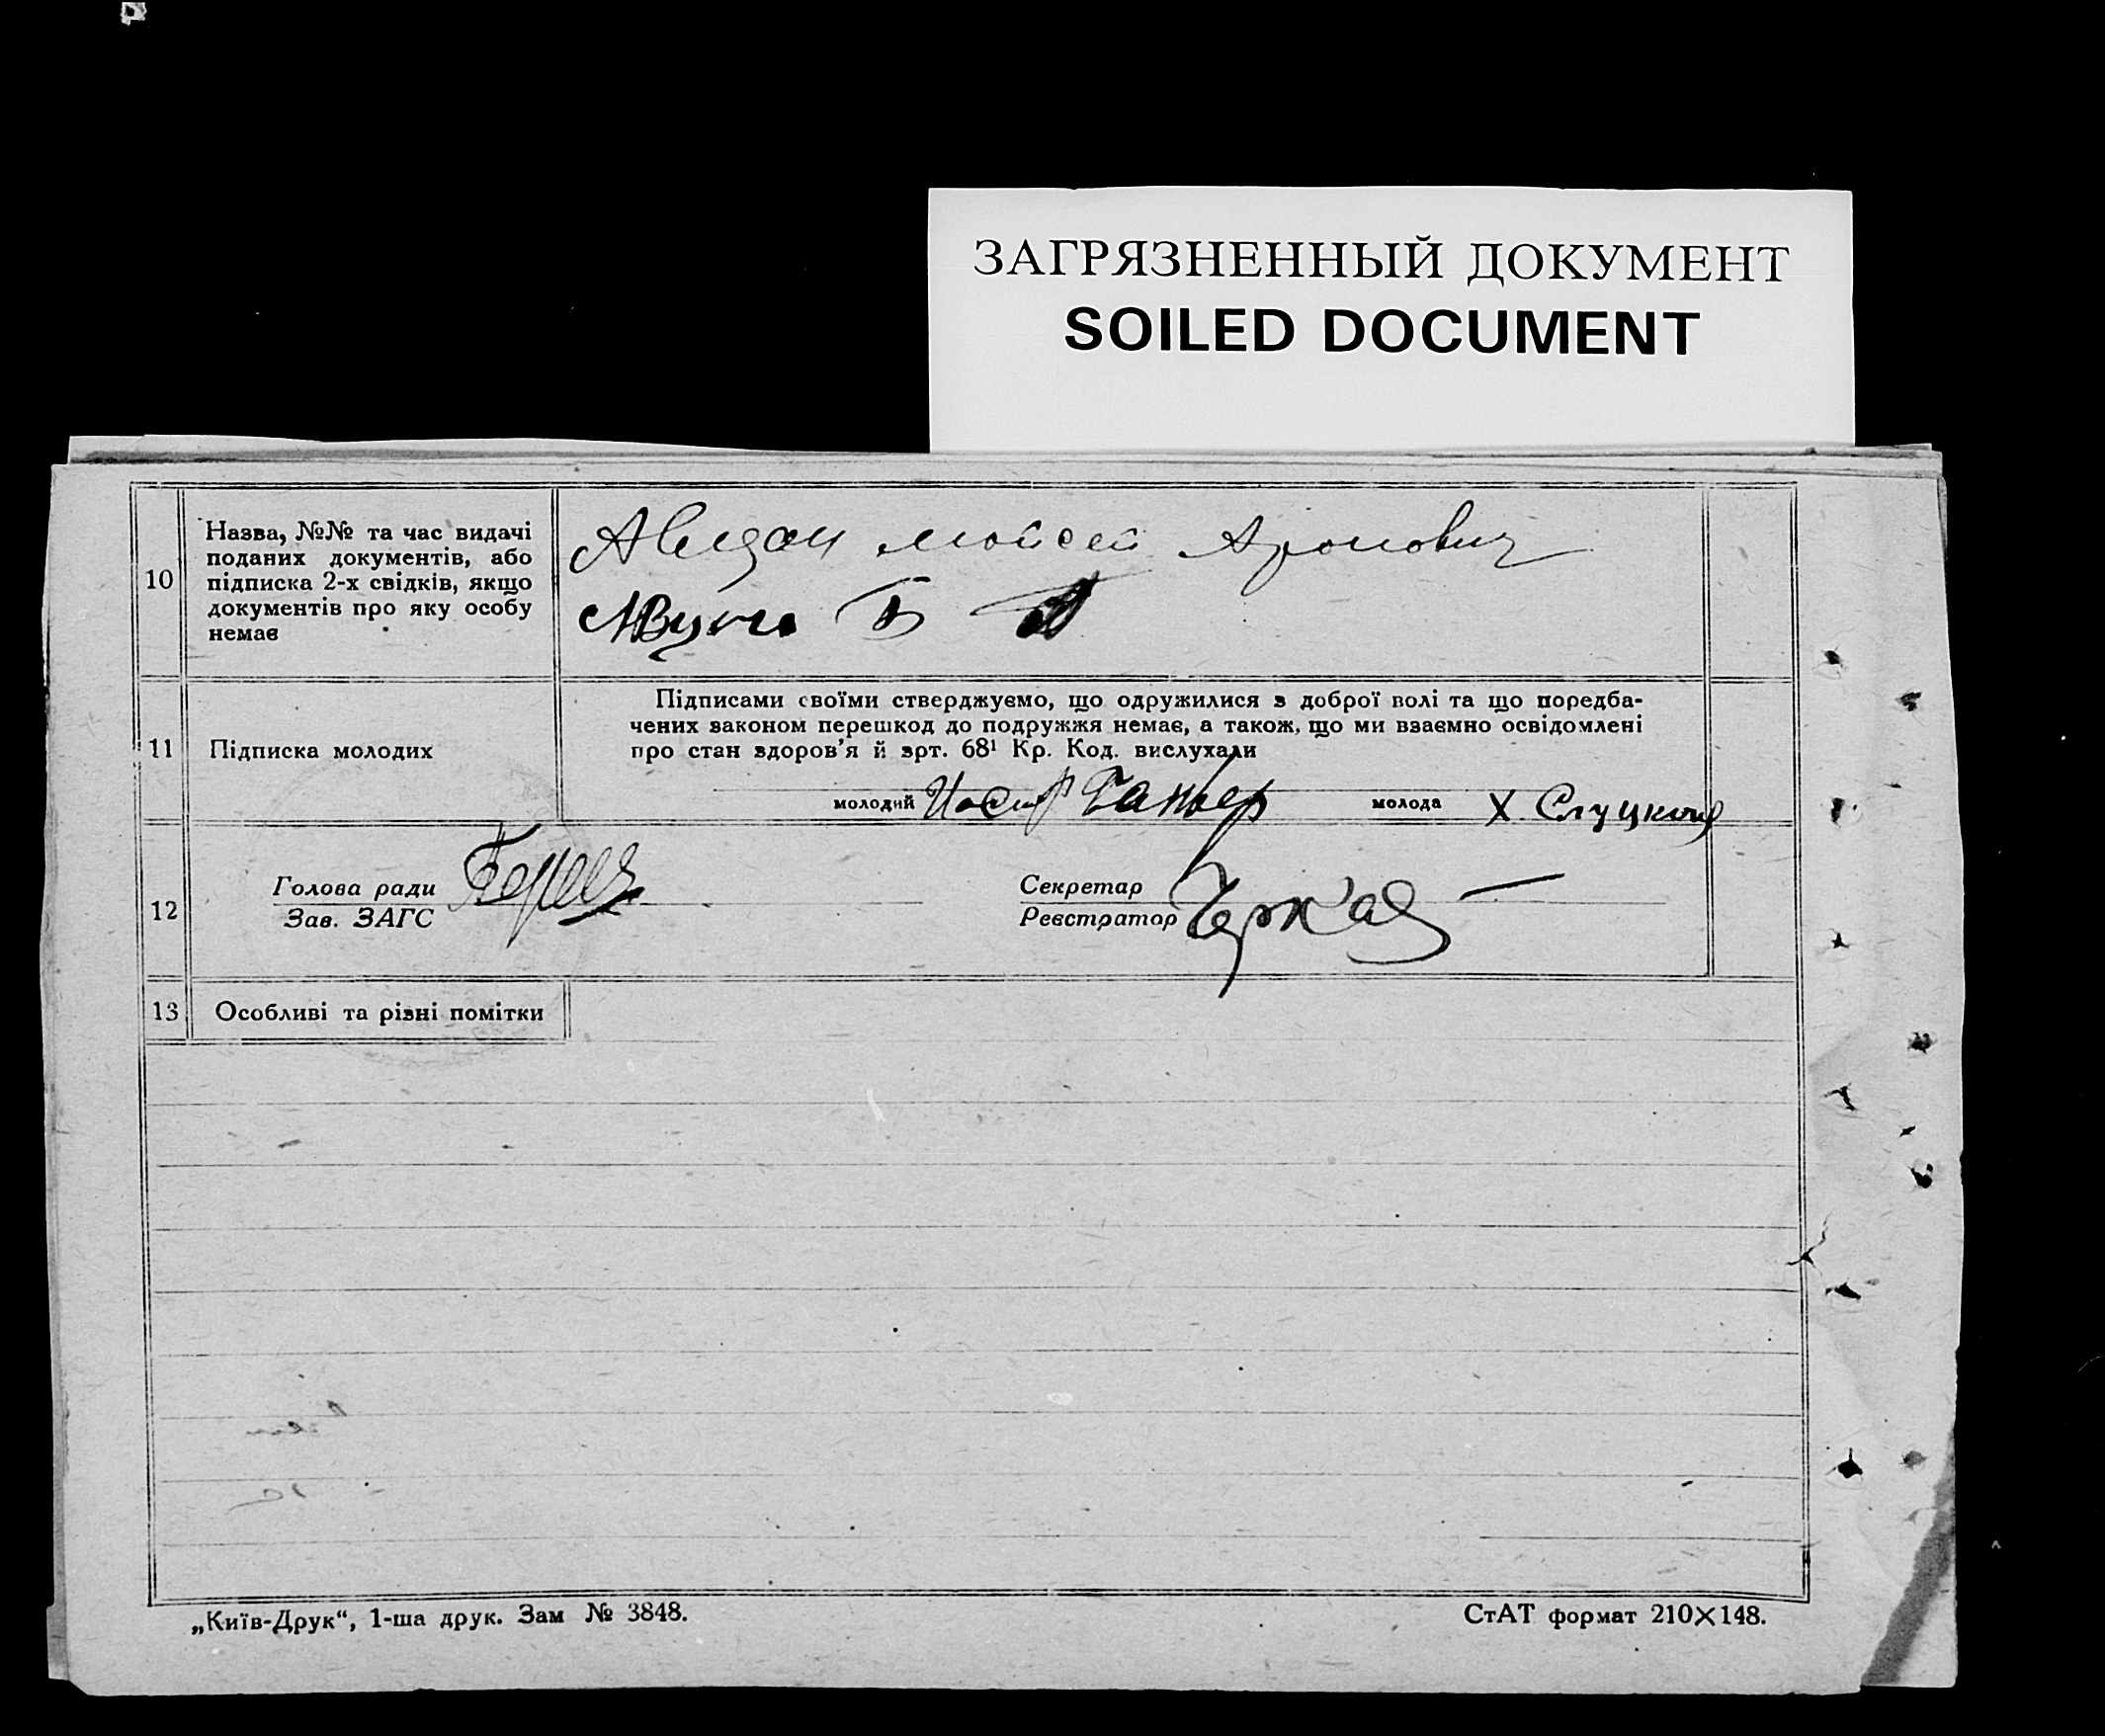 ЗАГРЯЗНЕННЫЙ ДОКУМЕНТ
SOILED DOCUMENT
10
Назва, №№ та час видачі
поданих документів, або
підписка 2-х свідків, якщо
документів про яку особу
немає
Мойсей Аронович
11
Підписка молодих
Підписами своїми стверджуємо, що одружилися з доброї волі та що поредба-
чених законом перешкод до подружжя немає, а також, що ми взаємно освідомлені
про стан здоров'я й врт. 68¹ Кр. Код. вислухали
молодий Иосиф молода Х. Слуцкая
12
Голова ради
Зав. ЗАГС
Секретар
Реєстратор
13
Особливі та різні помітки
„Київ-Друк“, 1-ша друк. Зам № 3848.
СтАТ формат 210×148.